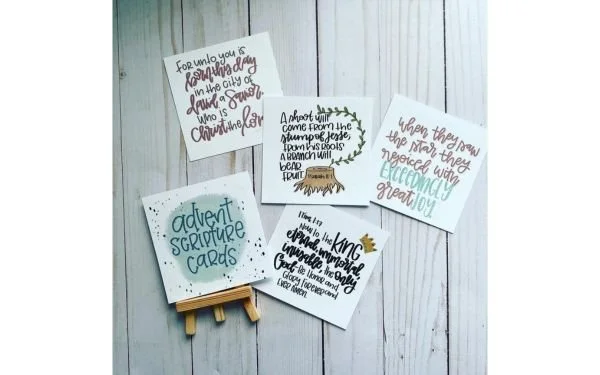 For unto you is
born this day
in the city of
david a Savior
who is
Christ the Lord
A shoot will
come from the
stump of Jesse,
from his roots
a Branch will
bear
fruit.
Isaiah 11:1
When they saw
the star they
rejoiced with
exceedingly
great Joy
advent
scripture
cards
1 Tim. 1:17
Now to the KING
eternal, immortal,
invisible, the only
God-Be Honor and
Glory Forever and
Ever. Amen.